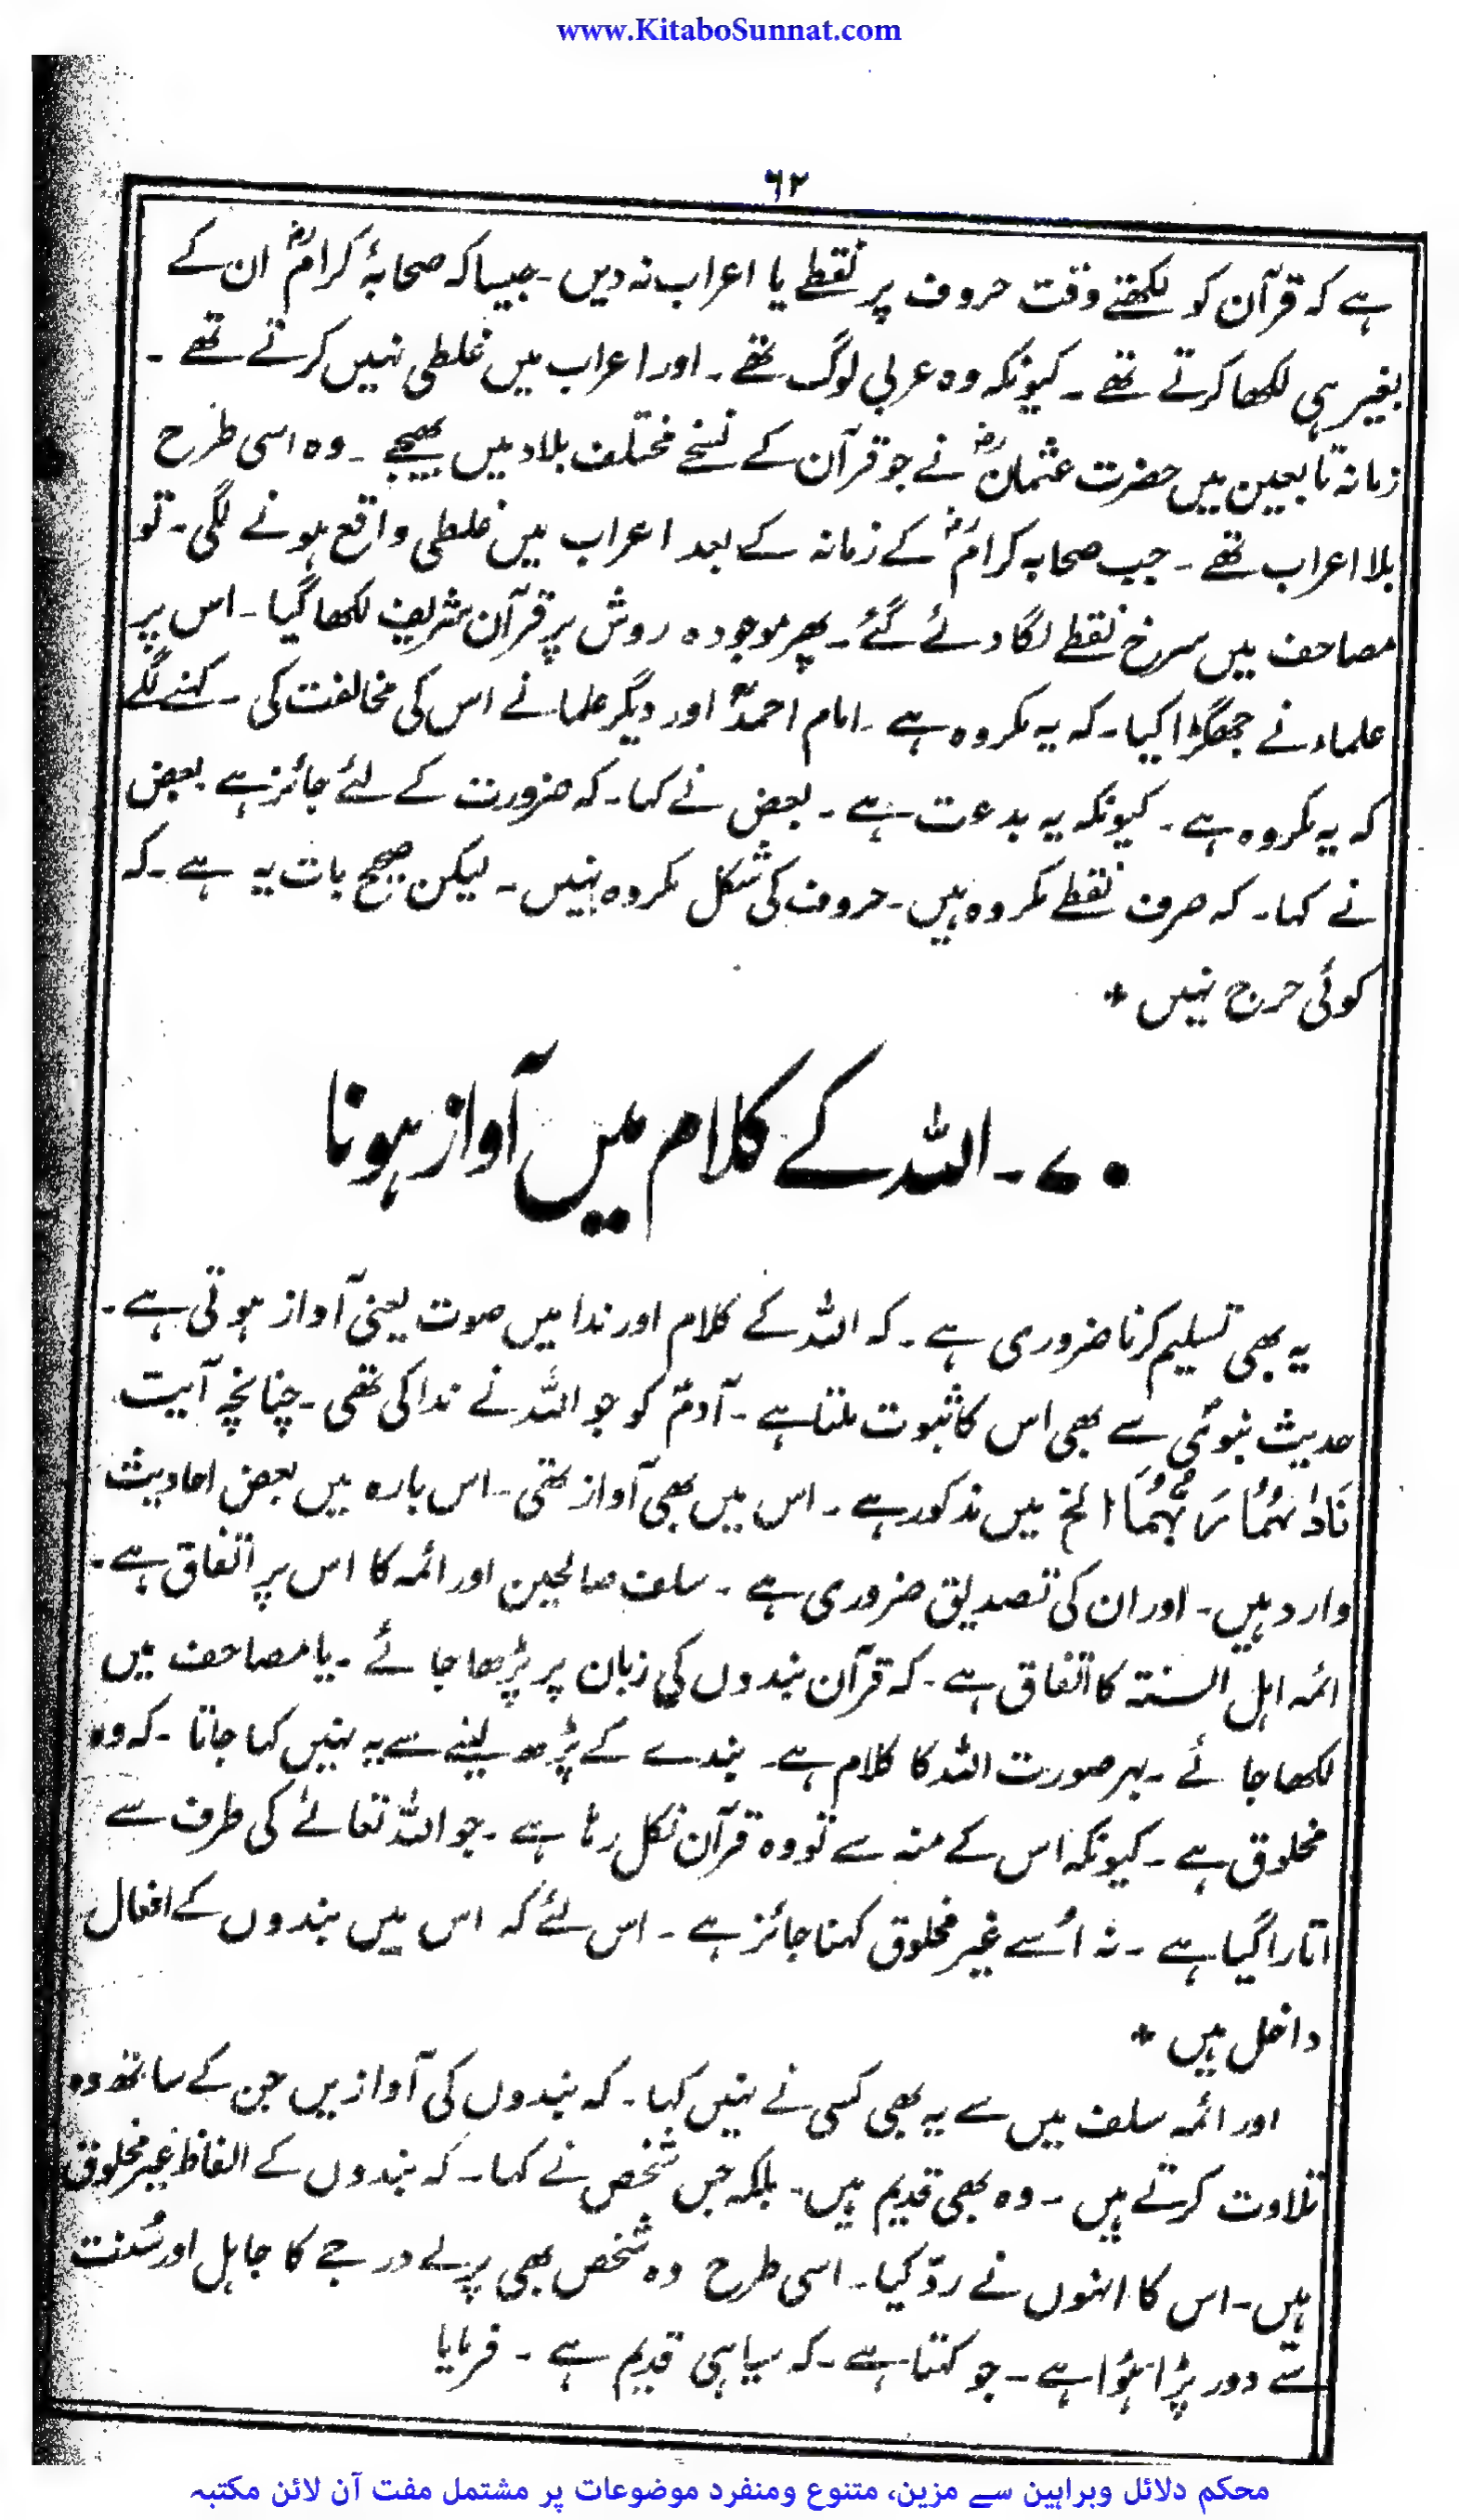 www.KitaboSunnat.com
٦٢
ہے کہ قرآن کو لکھتے وقت حروف پر نقطے یا اعراب نہ دیں۔ جیسا کہ صحابۂ کرامؓ ان کے
بغیر ہی لکھا کرتے تھے۔ کیونکہ وہ عربی لوگ تھے۔ اور اعراب میں غلطی نہیں کرتے تھے۔
زمانہ تابعین میں حضرت عثمانؓ نے جو قرآن کے نسخے مختلف بلاد میں بھیجے۔ وہ اسی طرح
بلا اعراب تھے۔ جب صحابہ کرامؓ کے زمانہ کے بعد اعراب میں غلطی واقع ہونے لگی۔ تو
مصاحف میں سرخ نقطے لگا دئے گئے۔ پھر موجودہ روش پر قرآن شریف لکھا گیا۔ اس پر
علماء نے جھگڑا کیا۔ کہ یہ مکروہ ہے۔ امام احمدؒ اور دیگر علما نے اس کی مخالفت کی۔ کہنے لگے
کہ یہ مکروہ ہے۔ کیونکہ یہ بدعت ہے۔ بعض نے کہا۔ کہ ضرورت کے لئے جائز ہے بعض
نے کہا۔ کہ صرف نقطے مکروہ ہیں۔ حروف کی شکل مکروہ نہیں۔ لیکن صحیح بات یہ ہے۔ کہ
کوئی حرج نہیں +
۷۰۔ اللہ کے کلام میں آواز ہونا
یہ بھی تسلیم کرنا ضروری ہے۔ کہ اللہ کے کلام اور ندا میں صوت یعنی آواز ہوتی ہے۔
حدیث نبویؐ سے بھی اس کا ثبوت ملتا ہے۔ آدمؑ کو جو اللہ نے ندا کی تھی۔ چنانچہ آیت
نَادٰىهُمَا رَبُّهُمَا الخ میں مذکور ہے۔ اس میں بھی آواز تھی۔ اس بارہ میں بعض احادیث
وارد ہیں۔ اور ان کی تصدیق ضروری ہے۔ سلف صالحین اور ائمہ کا اس پر اتفاق ہے۔
ائمہ اہل السنۃ کا اتفاق ہے۔ کہ قرآن بندوں کی زبان پر پڑھا جائے۔ یا مصاحف میں
لکھا جائے۔ بہر صورت اللہ کا کلام ہے۔ بندے کے پڑھ لینے سے یہ نہیں کہا جاتا۔ کہ وہ
مخلوق ہے۔ کیونکہ اس کے منہ سے تو وہ قرآن نکل رہا ہے۔ جو اللہ تعالےٰ کی طرف سے
اتارا گیا ہے۔ نہ اُسے غیر مخلوق کہنا جائز ہے۔ اس لئے کہ اس میں بندوں کے افعال
داخل ہیں +
اور ائمہ سلف میں سے یہ بھی کسی نے نہیں کہا۔ کہ بندوں کی آوازیں جن کے ساتھ وہ
تلاوت کرتے ہیں۔ وہ بھی قدیم ہیں۔ بلکہ جس شخص نے کہا۔ کہ بندوں کے الفاظ غیر مخلوق
ہیں۔ اس کا انہوں نے ردّ کیا۔ اسی طرح وہ شخص بھی پرلے درجے کا جاہل اور سُنت
سے دور پڑا ہؤا ہے۔ جو کہتا ہے۔ کہ سیاہی قدیم ہے۔ فرمایا
محکم دلائل وبراہین سے مزین، متنوع ومنفرد موضوعات پر مشتمل مفت آن لائن مکتبہ